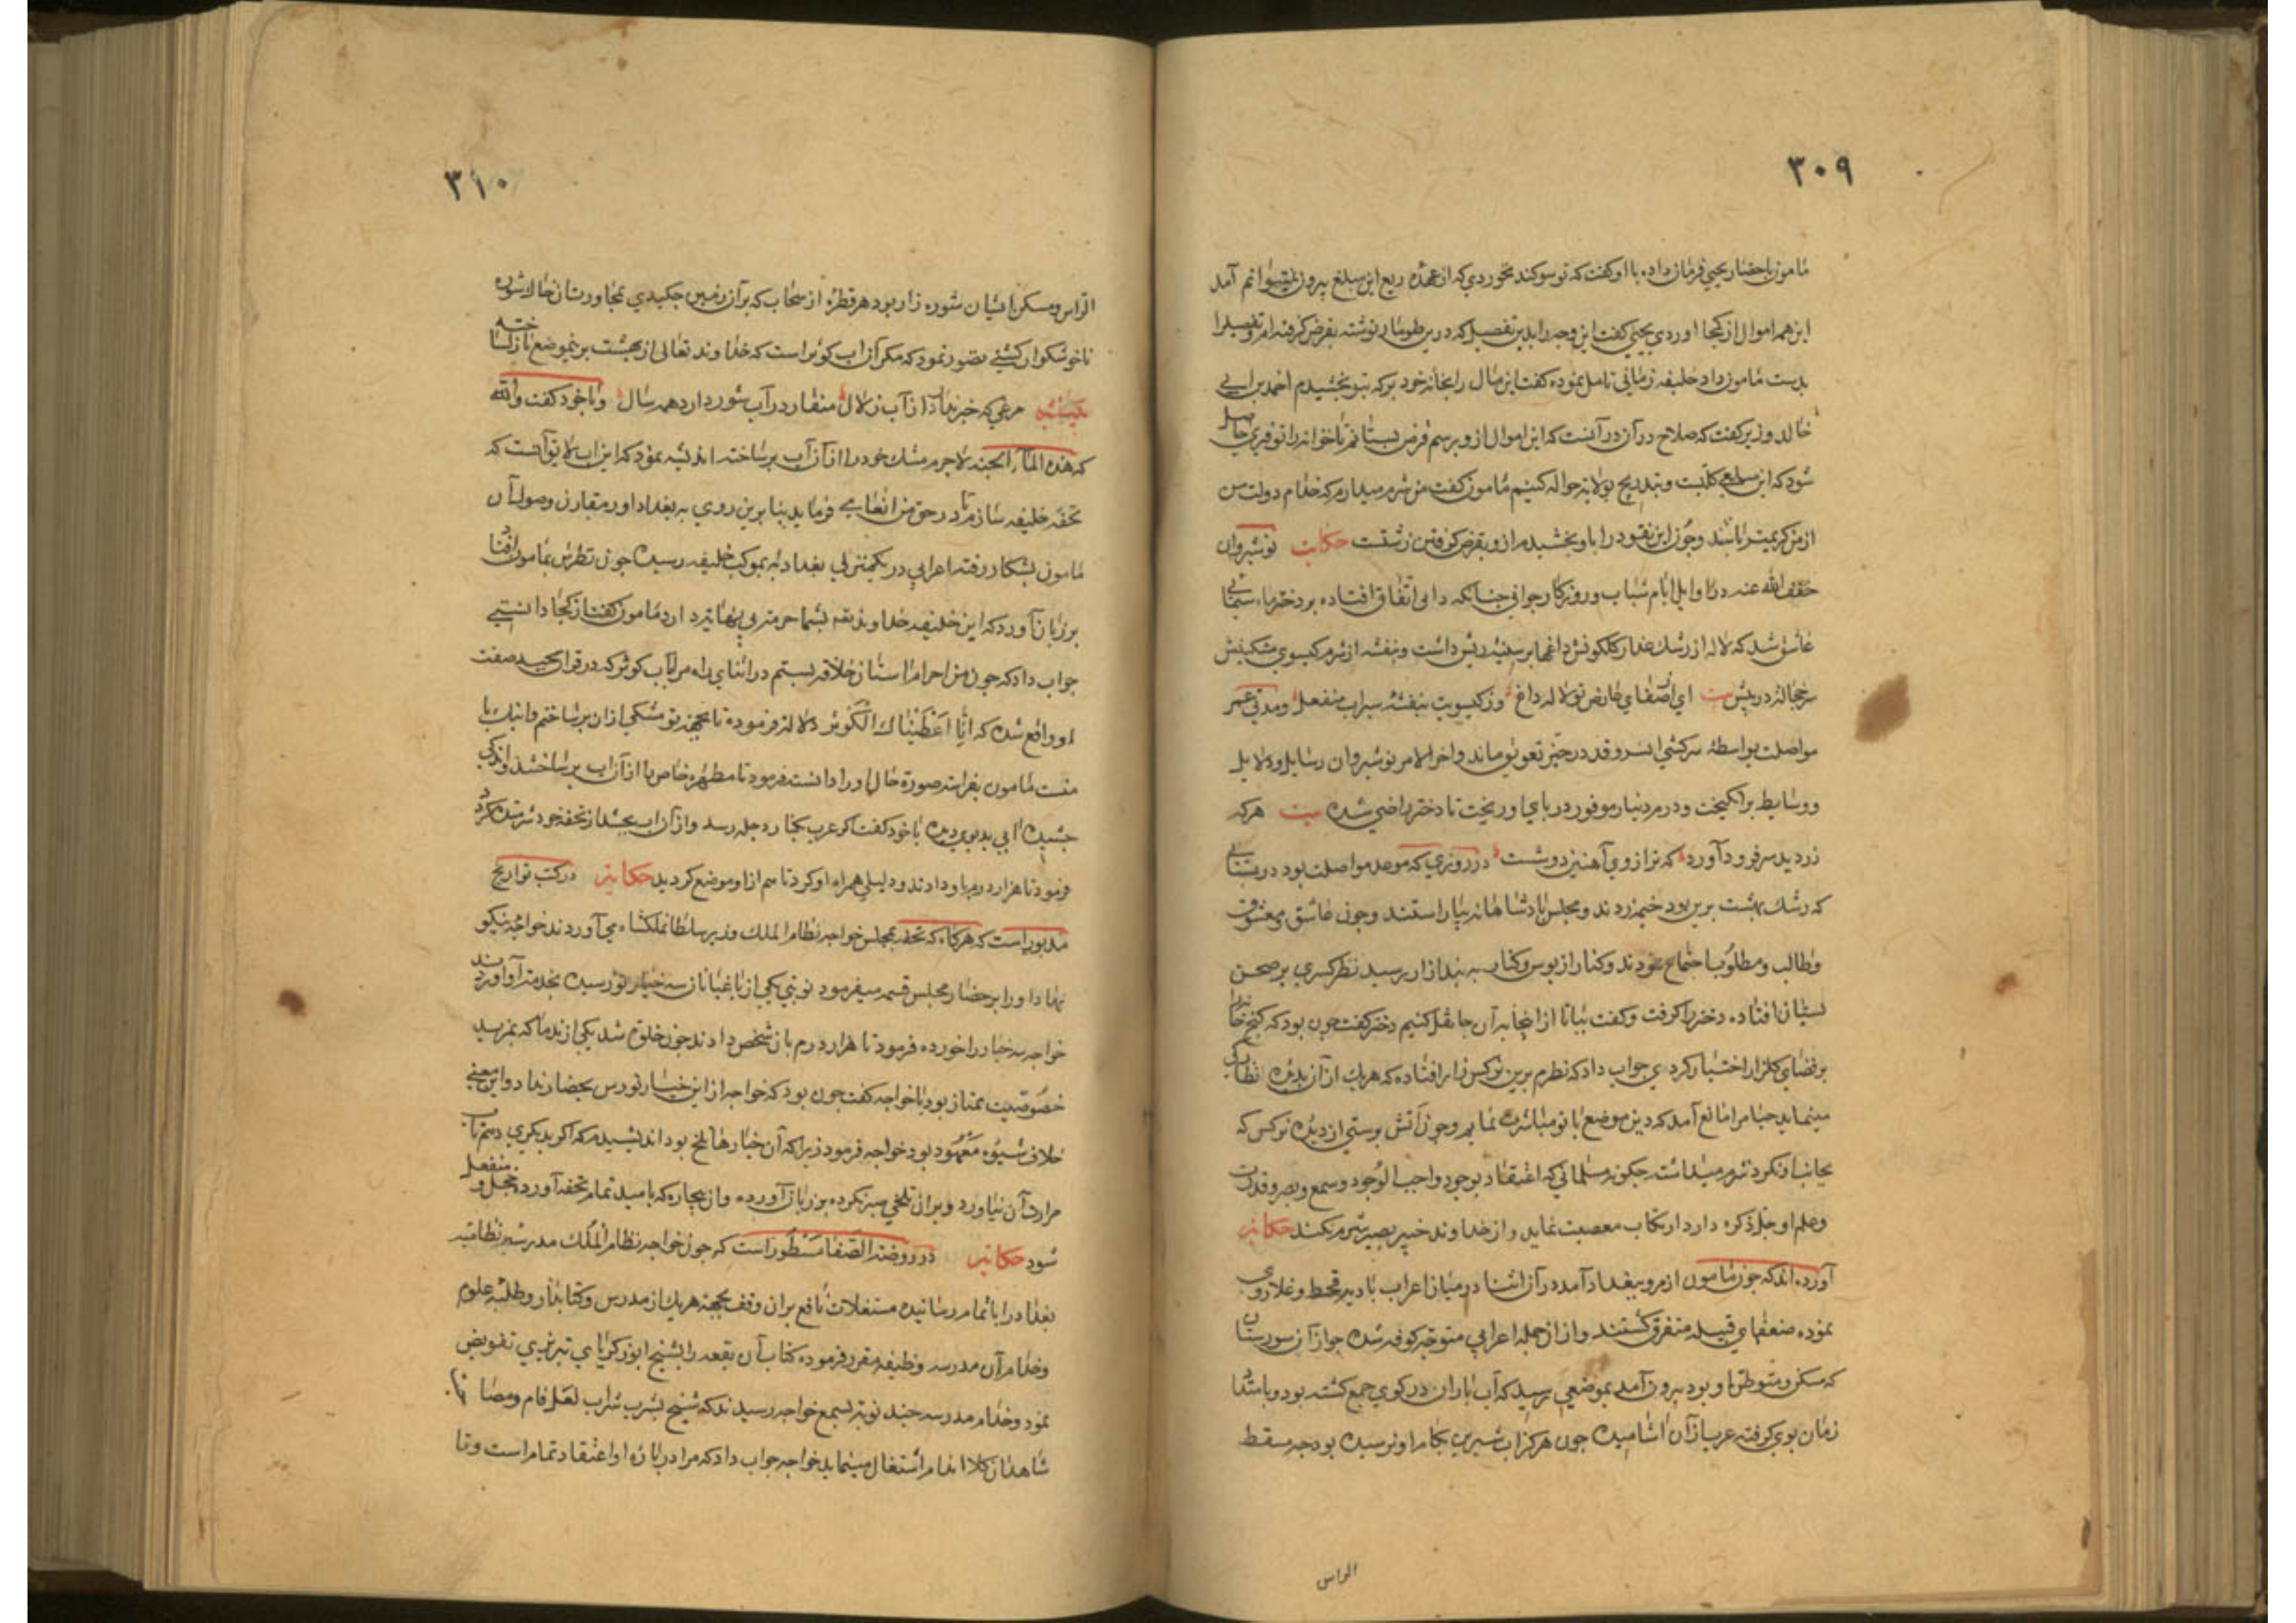 ۳۰۹
مامون باحضار یحیی فرمان داده با او کفت که تو سوکند خوردی که از عهده ربع این مبلغ بیرون نمیتوانم آمد
این همه اموال از کجا اوردی یحیی کفت این وجه را بدین تفصیل که درین طومار نوشته بقرض کرفته ام و تفصیل را
بدست مامون داد خلیفه زمانی تامل نموده کفت این مال را بخانه خود بر که بتو بخشیدم احمد بن ابی
خالد وزیر کفت که صلاح در آن در آنست که این اموال از و برسم قرض بستانم تا خوانه را توفیری حاصل
شود که این مبلغ کلیست و بتدریج بولایه حواله کنیم مامون کفت من شرم میدارم که خدام دولت من
از من کریمتر باشند وچون این نقود را باو بخشیدم از و بقرض کرفتن زشتست حکایت نوشیروان
خفف الله عنه در اوایل ایام شباب و روزکار جوانی چنانکه دانی اتفاق افتاده بر دختر ماه سیمائی
عاشق شد که لاله از رشک عذار کلکونش داغها بر سینه ریش داشت و بنفشه از شرم کیسوی مشکینش
سر خجالة در پیش بیت ای از صفای عارض تو لاله داغ وز کیسویت بنفشه سیراب منفعل ومدتی عمر
مواصلت بواسطه سرکشی ان سرو قد در حیز تعویق ماند واخر الامر نوشیروان رسایل و دلایل
ووسایط برانکیخت ودرم دینار موفور در پای او ریخت تا دختر راضی شد بیت هرکه
زر دید سر فرود آورد که ترازوی آهنین دوشست در روزی که موعد مواصلت بود در بستانی
که رشک بهشت برین بود خیمه زدند و مجلس پادشاهانه بیاراستند وچون عاشق ومعشوق
وطالب ومطلوب اجتماع نمودند وکنار از بوس وکنار به بند ازار رسید نظر کسری بر صحن
بستان افتاده دختر را کرفت وکفت بیا تا از اینجا به آن جا نقل کنیم دختر کفت چون بود که کنج خانه را
بر فضای کلزار اختیار کردی جواب داد که نظرم برین نرکس زار افتاده که هریک از آن بدیده نظارکی
مینماید حیا مرا مانع آمد که دین موضع با تو مباشرت نمایم وچون آتش پرستی از دیده نرکس که
بجانب او نکرد شرم میداشته چکونه مسلمانی که اعتقاد بوجود واجب الوجود وسمع وبصر وقدرت
وعلم او جل ذکره دارد ارتکاب معصیت نماید واز خداوند خبیر بصیر شرم نکند حکایة
آورده اند که چون مامون از مرو ببغداد آمد در آن اثنا در میان اعراب بادیه قحط وغلا روی
نموده ضعفای قبیله متفرق کشتند واز آن جمله اعرابی متوجه کوفه شد چو از آن سورستان
که مسکن ومتوطن او بود بیرون آمد بموضعی رسید که آب باران در کوی جمع کشته بود و بامتداد
زمان بوی کرفته عرب از آن اشامید چون هرکز آب شیرین بکام او نرسیده بود چه مسقط
الراس
۳۱۰
الراس ومسکن ایشان شوره زار بود هر قطره از سحاب که بر آن زمین چکیدی بمجاورت ان خاک شوره
ناخوشکوار کشتی تصور نمود که مکر آن اب کوثر است که خداوند تعالی از بهشت برینموضع نازل ساخته
بیت مرغی که خبر ندارد از آب زلال منقار در آب شور دارد همه سال وبا خود کفت والله
که هذه الماء الجنه لاجرم مشک خود را از آن آب پر ساخته اندیشه نمود که این اب لایق آنست که
تحفه خلیفه سازم تا در حق من انعامی فرماید بنا برین روی به بغداد اورد مقارن وصول آن
مامون بشکار رفته اعرابی در یکمنزلی بغداد به موکب خلیفه رسید چون نظرش بمامون افتاد
بر زبان آورد که این خلیفه خداوند بقه بشما حرمتی بی نهایة دارد مامون کفت از کجا دانستی
جواب داد که چون من احرام استان خلافه بستم در اثنای راه مرا آب کوثر که در قران مجید صفت
او واقع شده که انا اعطیناک الکوثر دلاله فرموده تا بجهة تو مشکی از ان پر ساختم واینک با
منست مامون بفراسته صورة حال او را دانست فرمود تا مطهره خاص را از آن اب پر ساختند واندکی
چشیده ابی بد بوی دید با خود کفت اکر عرب بکنار دجله رسد واز آن اب بچشد از تحفه خود شرمنده کردد
فرمود تا هزار درم باو دادند و دلیلی همراه او کرد تا هم از او موضع کردید حکایة در کتب تواریخ
مذبور است که هرکاه که تحفه بمجلس خواجه نظام الملک وزیر سلطان ملکشاه می آوردند خواجه نیکو
نهاد او را بر حضار مجلس قسمه میفرمود نوبتی یکی از باغبانان سه خیار نو رسیده بخدمة او آوردند
خواجه سه خیار را خورده فرمود تا هزار درم بان شخص دادند چون خلوة شد یکی از ندما که بمزید
خصوصیت ممتاز بود با خواجه کفت چون بود که خواجه از این خیار نورس بحضار نداد واین معنی
خلاف شیوه معهود بود خواجه فرمود زیرا که آن خیارها تلخ بود اندیشیدم که اکر بدیکری دهم تاب
مرارت آن نیاورد وبران تلخی صبر نکرده بر زبان آورده وان بیچاره که بامید تمام تحفه آورده خجل ومنفعل
شود حکایة در روضة الصفا مسطور است که چون خواجه نظام الملک مدرسه نظامیه
بغداد را باتمام رسانیده مستغلات نافع بران وقف بجهة هریک از مدرس وکتابدار وطلبه علوم
وخدام آن مدرسه وظیفه مقرر فرموده کتاب آن بقعه را بشیخ ابو زکریای تبریزی تفویض
نمود وخدام مدرسه چند نوبة بسمع خواجه رسیدند که شیخ بشرب شراب لعل فام ومصا
شاهدان کلاندام اشتغال مینماید خواجه جواب داد که مرا در باره او اعتقاد تمام است وتا